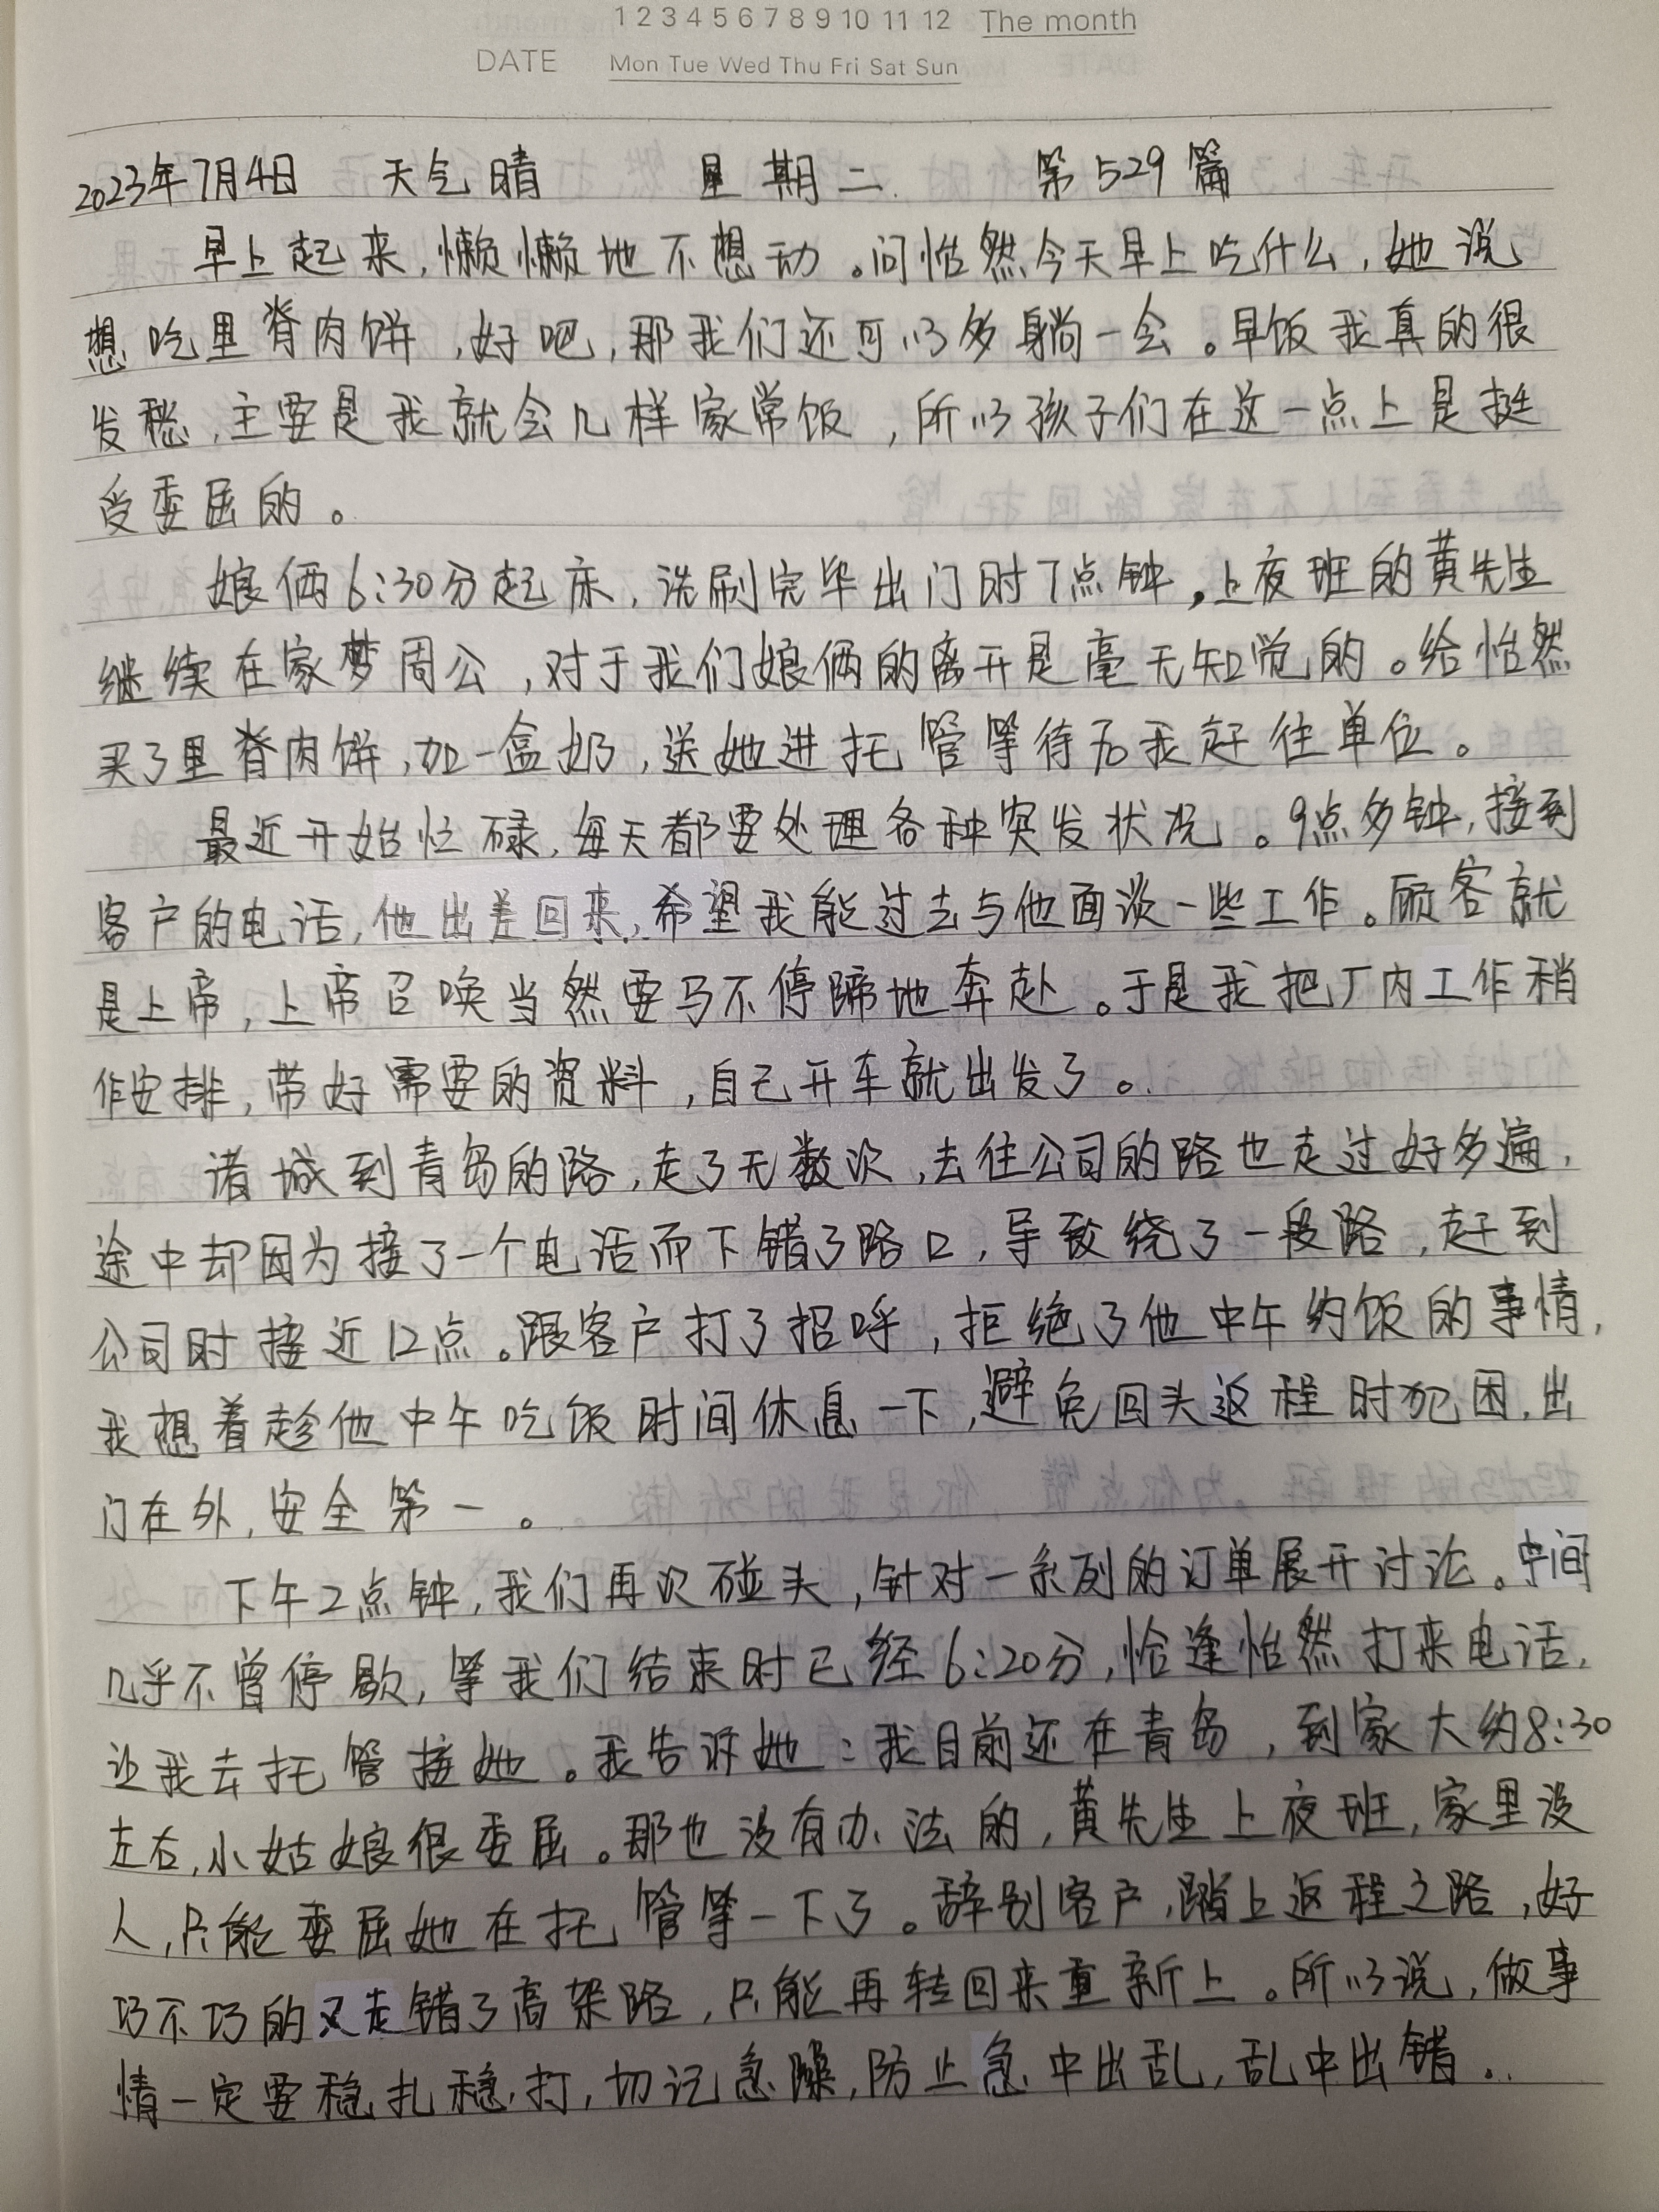 1 2 3 4 5 6 7 8 9 10 11 12 The month
DATE Mon Tue Wed Thu Fri Sat Sun
2023年7月4日 天气晴 星期二 第529篇
早上起来,懒懒地不想动。问怡然今天早上吃什么,她说
想吃里脊肉饼,好吧,那我们还可以多躺一会。早饭我真的很
发愁,主要是我就会几样家常饭,所以孩子们在这一点上是挺
受委屈的。
娘俩6:30分起床,洗刷完毕出门时7点钟,上夜班的黄先生
继续在家梦周公,对于我们娘俩的离开是毫无知觉的。给怡然
买了里脊肉饼,加一盒奶,送她进托管等待后我赶往单位。
最近开始忙碌,每天都要处理各种突发状况。9点多钟,接到
客户的电话,他出差回来,希望我能过去与他面谈一些工作。顾客就
是上帝,上帝召唤当然要马不停蹄地奔赴。于是我把厂内工作稍
作安排,带好需要的资料,自己开车就出发了。
诸城到青岛的路,走了无数次,去往公司的路也走过好多遍,
途中却因为接了一个电话而下错了路口,导致绕了一段路,赶到
公司时接近12点。跟客户打了招呼,拒绝了他中午约饭的事情,
我想着趁他中午吃饭时间休息一下,避免回头返程时犯困,出
门在外,安全第一。
下午2点钟,我们再次碰头,针对一系列的订单展开讨论。中间
几乎不曾停歇,等我们结束时已经6:20分,恰逢怡然打来电话,
让我去托管接她。我告诉她:我目前还在青岛,到家大约8:30
左右,小姑娘很委屈。那也没有办法的,黄先生上夜班,家里没
人,只能委屈她在托管等一下了。辞别客户,踏上返程之路,好
巧不巧的又走错了高架路,只能再转回来重新上。所以说,做事
情一定要稳扎稳打,切记急躁,防止急中出乱,乱中出错。